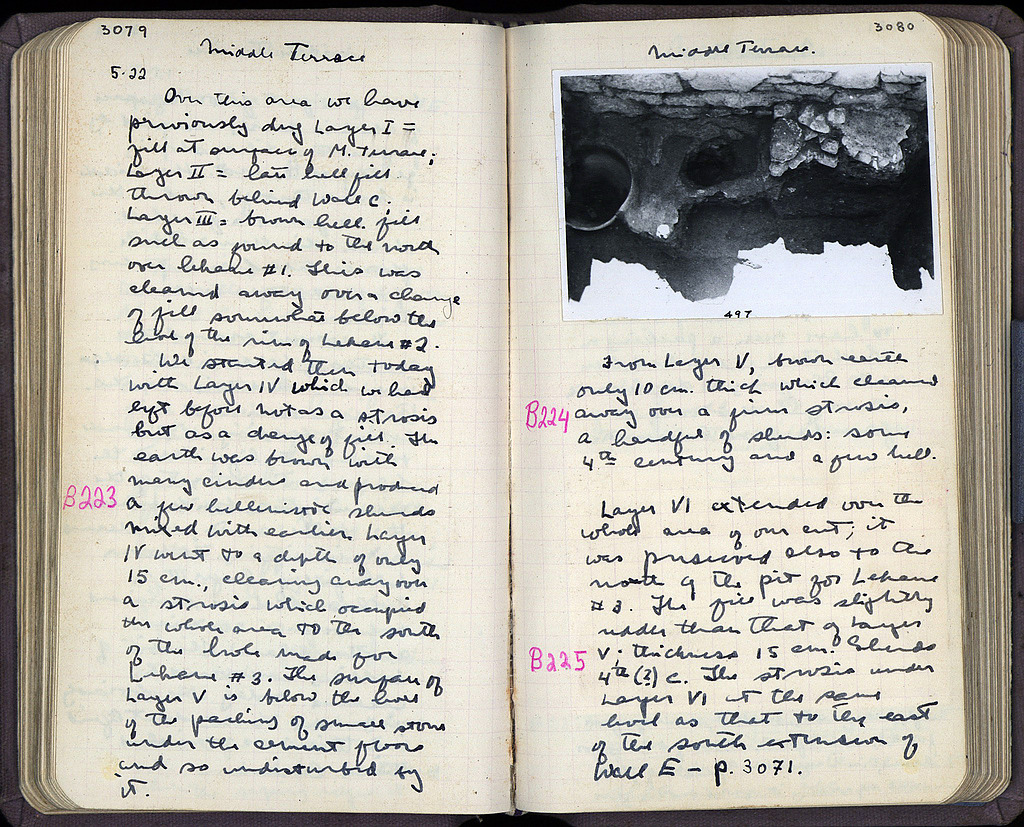 3079
Middle Terrace
5·22
Over this area we have
previously dug Layer I =
fill at surface of M. Terrace;
Layer II = late hell fill
thrown behind Wall C.
Layer III = brown hell. fill
such as found to the north
over lekane #1. This was
cleared away over a change
of fill somewhat below the
level of the rim of Lekane #2.
We started then today
with Layer IV which we had
left before not as a strosis
but as a change of fill. The
earth was brown with
many cinders and produced
B223 a few hellenistic sherds
mixed with earlier. Layer
IV went to a depth of only
15 cm., clearing away over
a strosis which occupied
the whole area to the south
of the hole made for
Lekane #3. The surface of
Layer V is below the level
of the packing of small stone
under the cement floors
and so undisturbed by
it.
3080
Middle Terrace.
497
From Layer V, brown earth
only 10 cm. thick which cleaned
B224 away over a firm strosis,
a handful of sherds: some
4th century and a few hell.
Layer VI extended over the
whole area of our cut; it
was preserved also to the
north of the pit for Lekane
#3. The fill was slightly
redder than that of Layer
V: thickness 15 cm. Sherds
B225 4th (?) c. The strosis under
Layer VI at the same
level as that to the east
of the south extension of
Wall E – p. 3071.